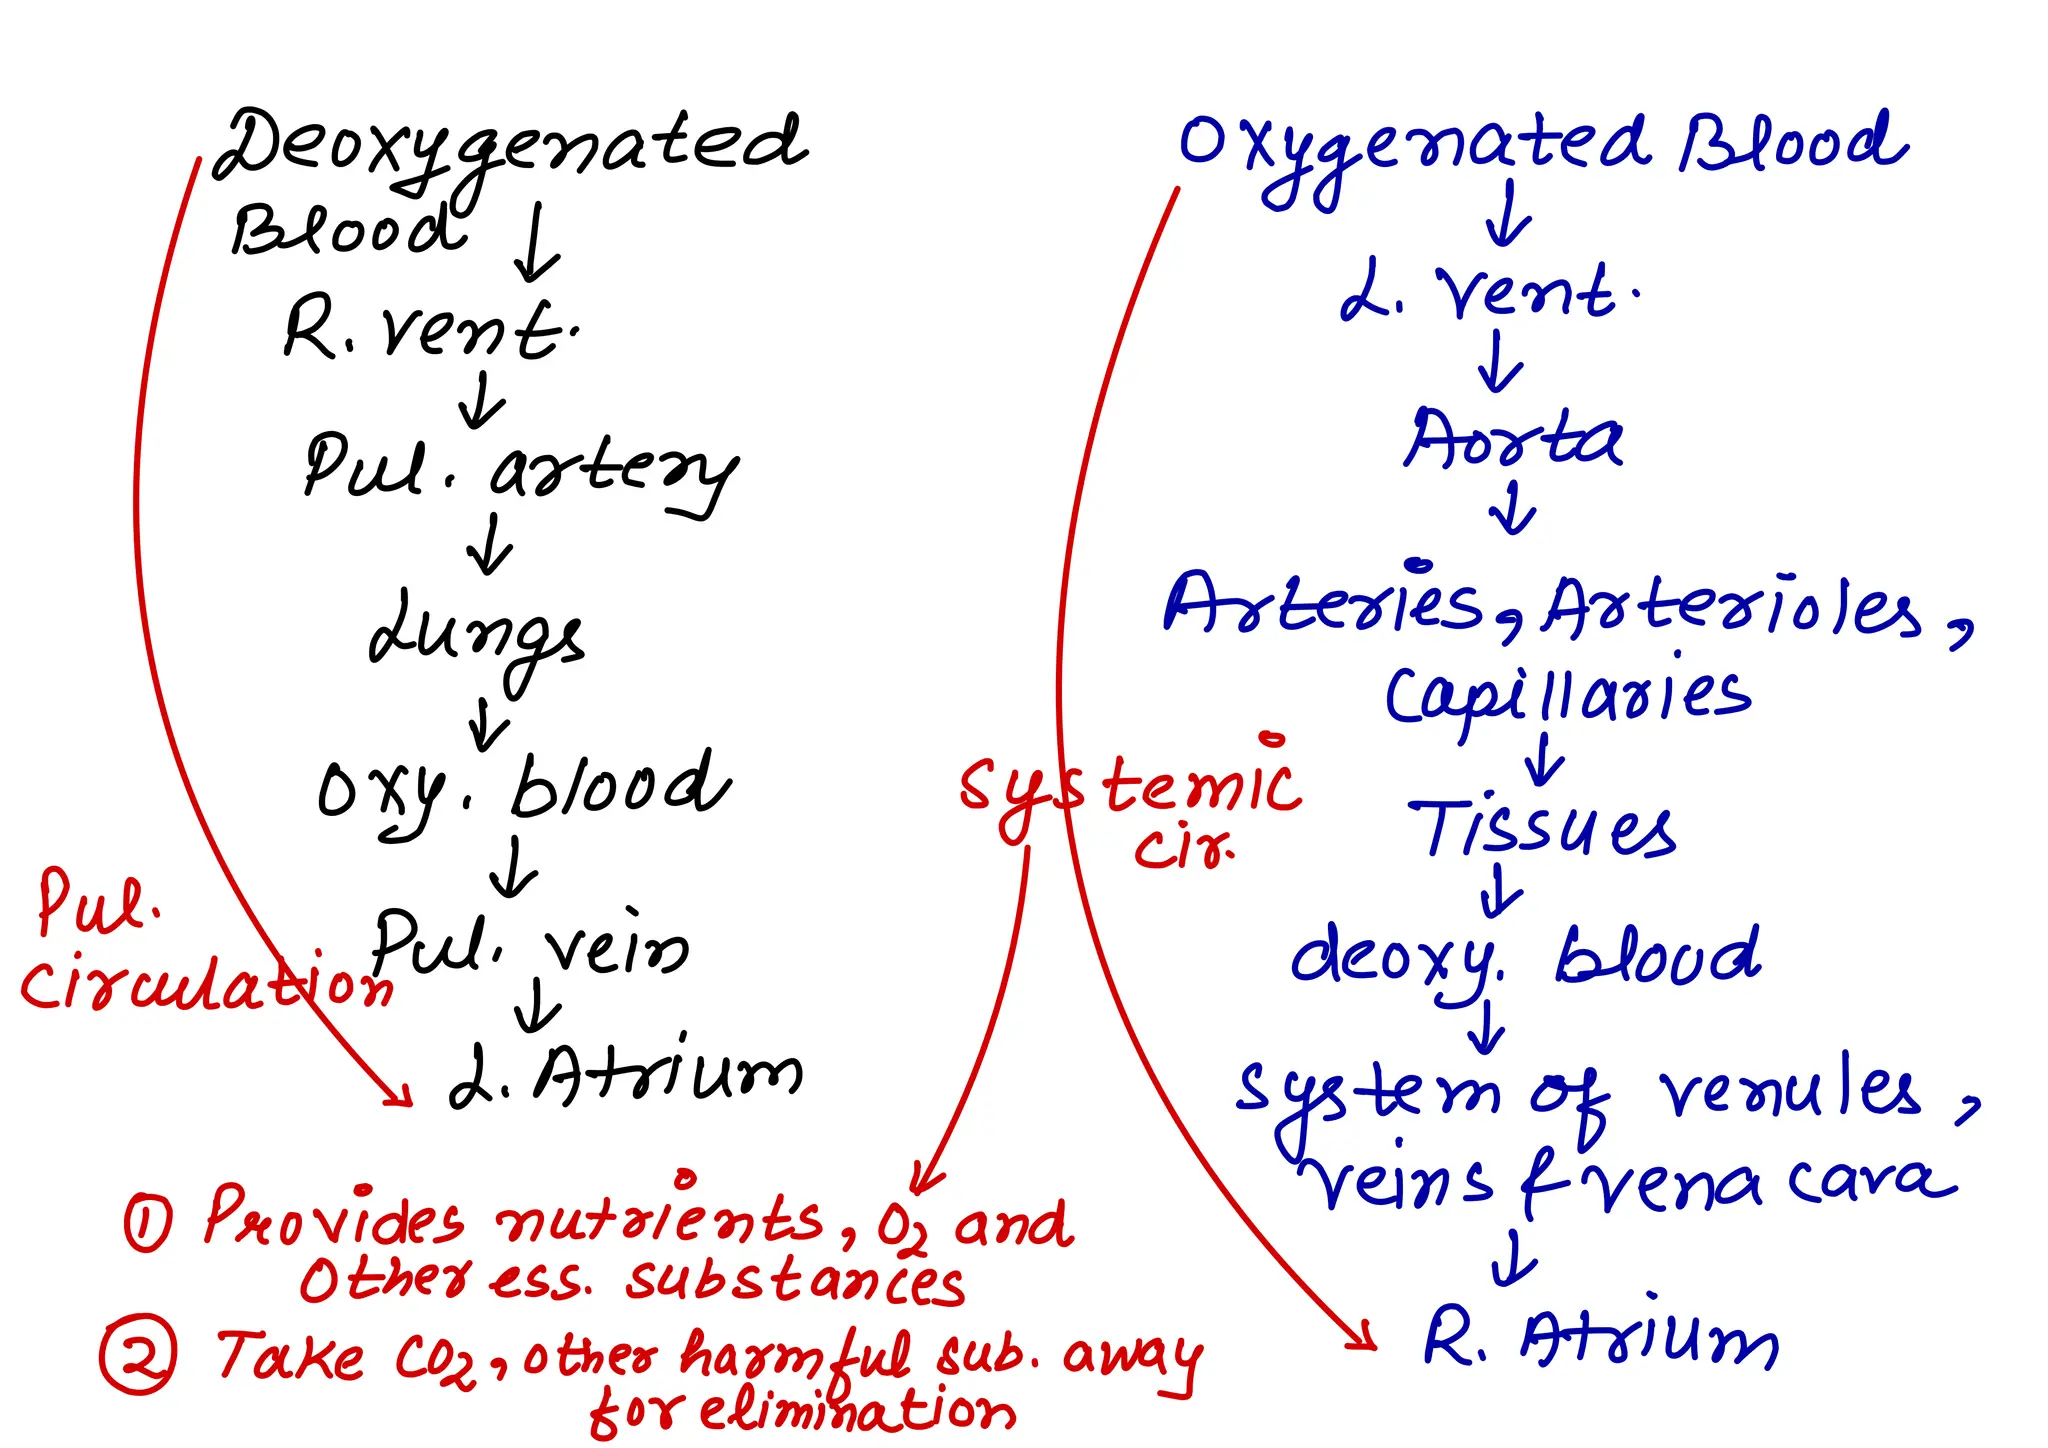 Deoxygenated
Blood
↓
R. vent.
↓
Pul. artery
↓
Lungs
↓
Oxy. blood
↓
Pul. vein
↓
L. Atrium
Pul.
circulation
Oxygenated Blood
↓
L. Vent.
↓
Aorta
↓
Arteries, Arterioles,
Capillaries
↓
Tissues
↓
deoxy. blood
↓
system of venules,
veins & vena cava
↓
R. Atrium
Systemic
cir.
① Provides nutrients, O₂ and
Other ess. substances
② Take CO₂, other harmful sub. away
for elimination